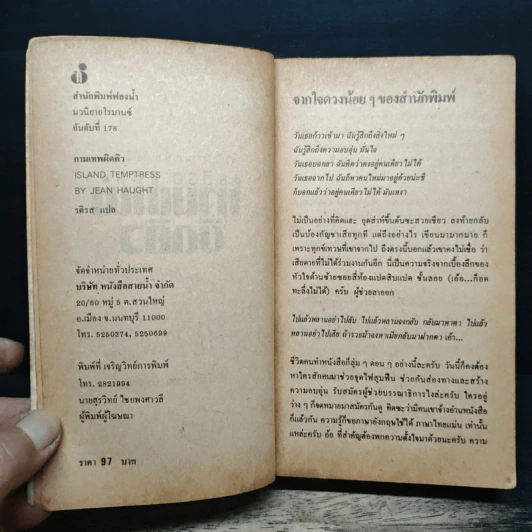 สำนักพิมพ์ฟองน้ำ
นวนิยายโรมานซ์
อันดับที่ 178
กามเทพผิดคิว
ISLAND TEMPTRESS
BY JEAN HAUGHT
รติรส แปล
จัดจำหน่ายทั่วประเทศ
บริษัท หนังสือสายน้ำ จำกัด
20/60 หมู่ 5 ต.สวนใหญ่
อ.เมือง จ.นนทบุรี 11000
โทร. 5250374, 5250699
พิมพ์ที่ เจริญวิทย์การพิมพ์
โทร. 2821994
นายสุรวิทย์ ไชยพงศาวลี
ผู้พิมพ์ผู้โฆษณา
ราคา 97 บาท
จากใจดวงน้อย ๆ ของสำนักพิมพ์
วันเธอก้าวเข้ามา ฉันรู้สึกถึงสิ่งใหม่ ๆ
ฉันรู้สึกถึงความอบอุ่น มั่นใจ
วันเธอบอกลา ฉันคิดว่าคงอยู่คนเดียวไม่ได้
วันเธอจากไป ฉันก็หาคนใหม่มาอยู่ด้วยน่ะซี
ก็บอกแล้วว่าอยู่คนเดียวไม่ได้ มันเหงา
ไม่เป็นอย่างที่คิดและ อุตส่าห์ขึ้นต้นซะสวยเชียว ลงท้ายกลับ
เป็นบ้องกัญชาเสียทุกที แต่ถึงอย่างไร เขียนมาบากมาย ก็
เพราะทุกข์เทวษที่เขาจากไป ถึงตรงนี้บอกแล้วเขาคงไม่เชื่อ ว่า
เสียดายที่ไม่ได้ร่วมงานกันอีก นี่เป็นความจริงจากเบื้องลึกของ
หัวใจด้านซ้ายซอยสี่ห้องแปดสิบแปด ชั้นลอย (เอ้อ...ก็อด
ทะลึ่งไม่ได้) ครับ ผู้ช่วยลาออก
ไปแล้วหลานอย่าไปลับ ไปแล้วหลานจงกลับ กลับมาหาตา ไปแล้ว
หลานอย่าไปเสีย ถ้ารวยม้าจงหาเมียกลับมาฝากตา เฮ้า...
ชีวิตคนทำหนังสือก็ลุ่ม ๆ ดอน ๆ อย่างนี้ละครับ วันนี้ก็คงต้อง
หาใครสักคนมาช่วยจุดไฟสุมฟืน ช่วยกันส่องทางและสร้าง
ความอบอุ่น รับสมัครผู้ช่วยบรรณาธิการไงล่ะครับ ใครอยู่
ว่าง ๆ ก็จดหมายมาสมัครกันดู คิดซะว่ามีคนเขาจ้างอ่านหนังสือ
ก็แล้วกัน ความรู้ก็ขอภาษาอังกฤษใช้ได้ ภาษาไทยแม่น เท่านั้น
แหล่ะครับ อ้อ ที่สำคัญต้องพกความตั้งใจมาด้วยนะครับ ความ